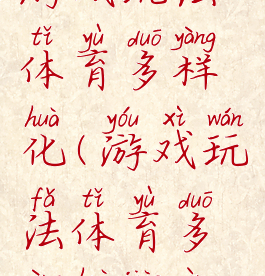 tǐ yù duō yàng
体育多样
huà yóu xì wán
化(游戏玩
fǎ tǐ yù duō
法体育多